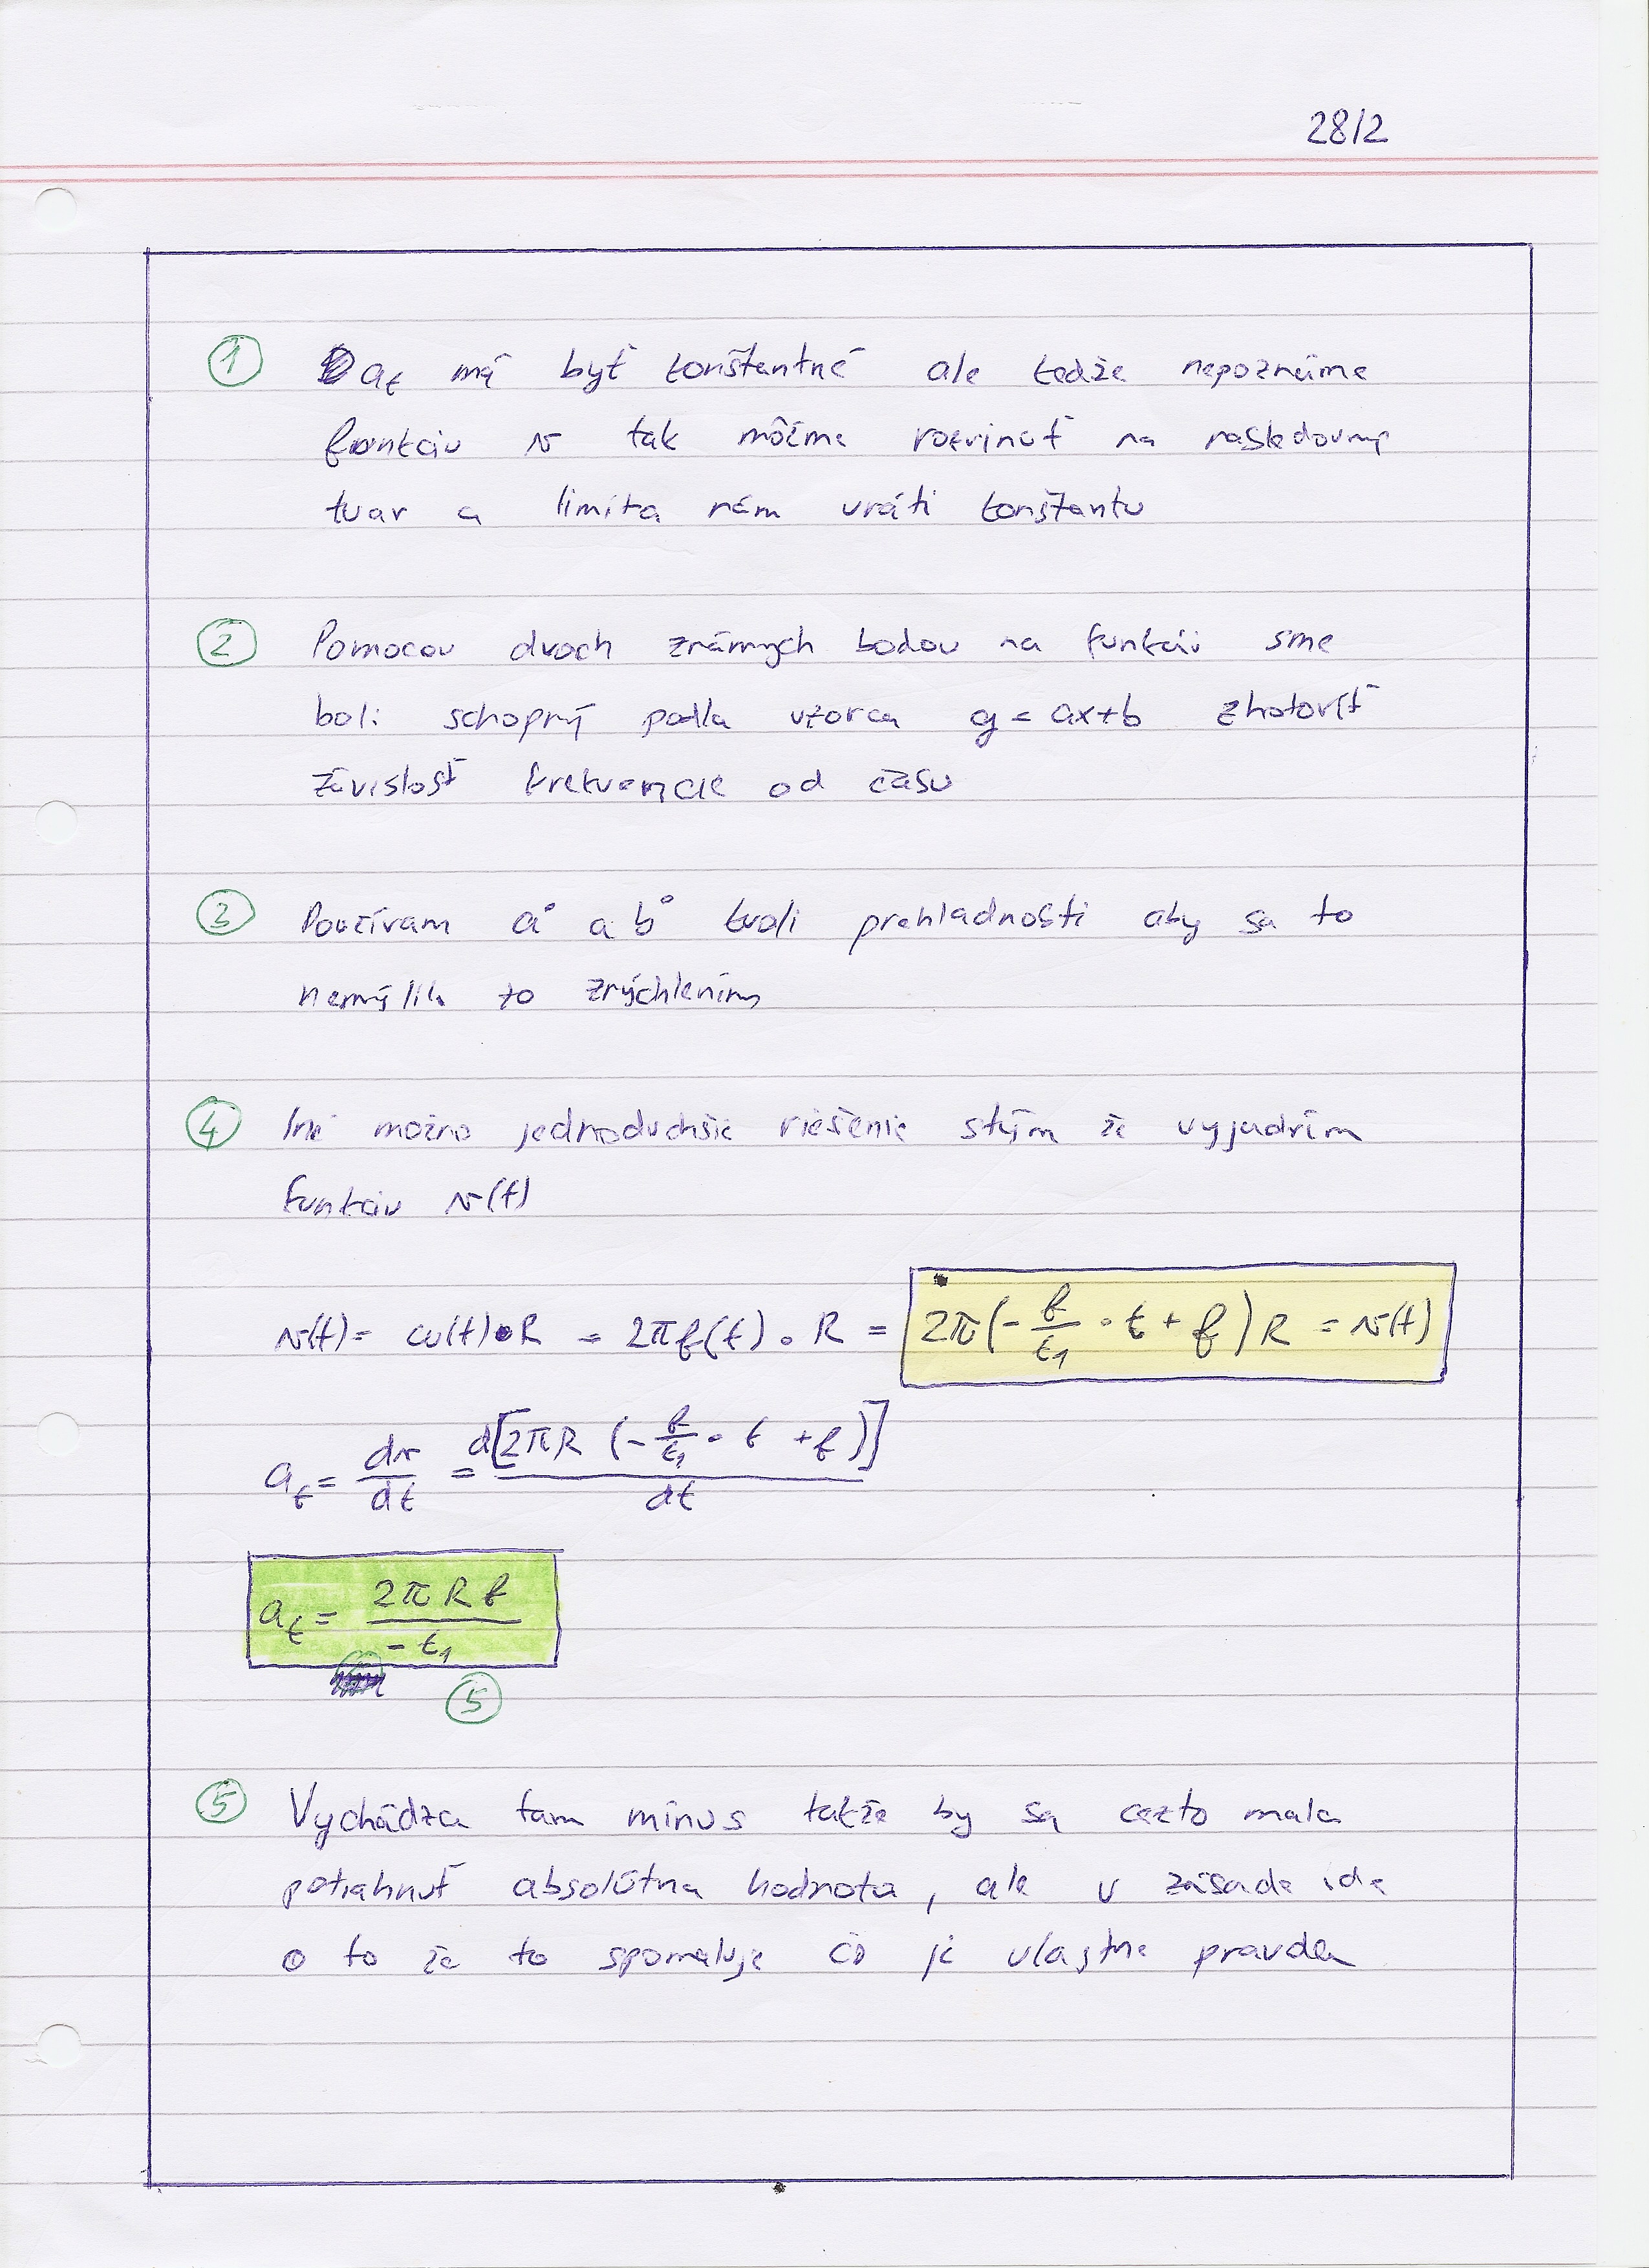 28/2
1 at má byť konštantné ale keďže nepoznáme
funkciu v tak môžme rozvinúť na nasledovný
tvar a limita nám vráti konštantu
2 Pomocou dvoch známych bodov na funkcii sme
boli schopný podla vzorca y = ax+b zhotoviť
závislosť frekvencie od času
3 Používam a° a b° kvoli prehladnosti aby sa to
nemýlilo zo zrýchlením
4 Iné možno jednoduchšie riešenie stým že vyjadrím
funkciu v(t)
v(t) = ω(t)·R = 2πf(t)·R = 2π(-f/t₁·t + f)R = v(t)
a_t = dv/dt = d[2πR(-f/t₁·t + f)]/dt
a_t = 2πRf/-t₁
5
5 Vychádza tam mínus takže by sa cezto mala
potiahnuť absolútna hodnota, ale v zásade ide
o to že to spomaluje čo je vlastne pravda